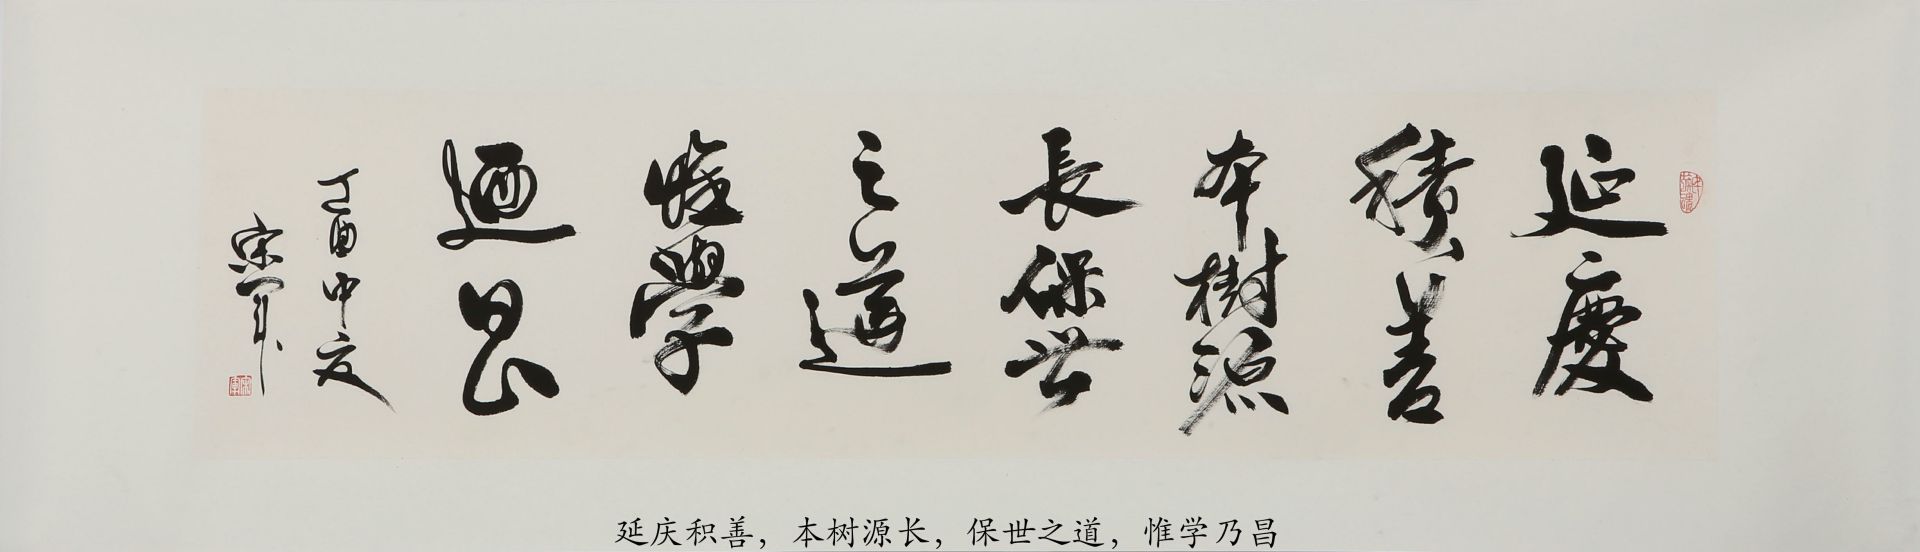 延慶
積善
本樹源
長保世
之道
惟學
迺昌
丁酉中夏
宋軍
延庆积善，本树源长，保世之道，惟学乃昌